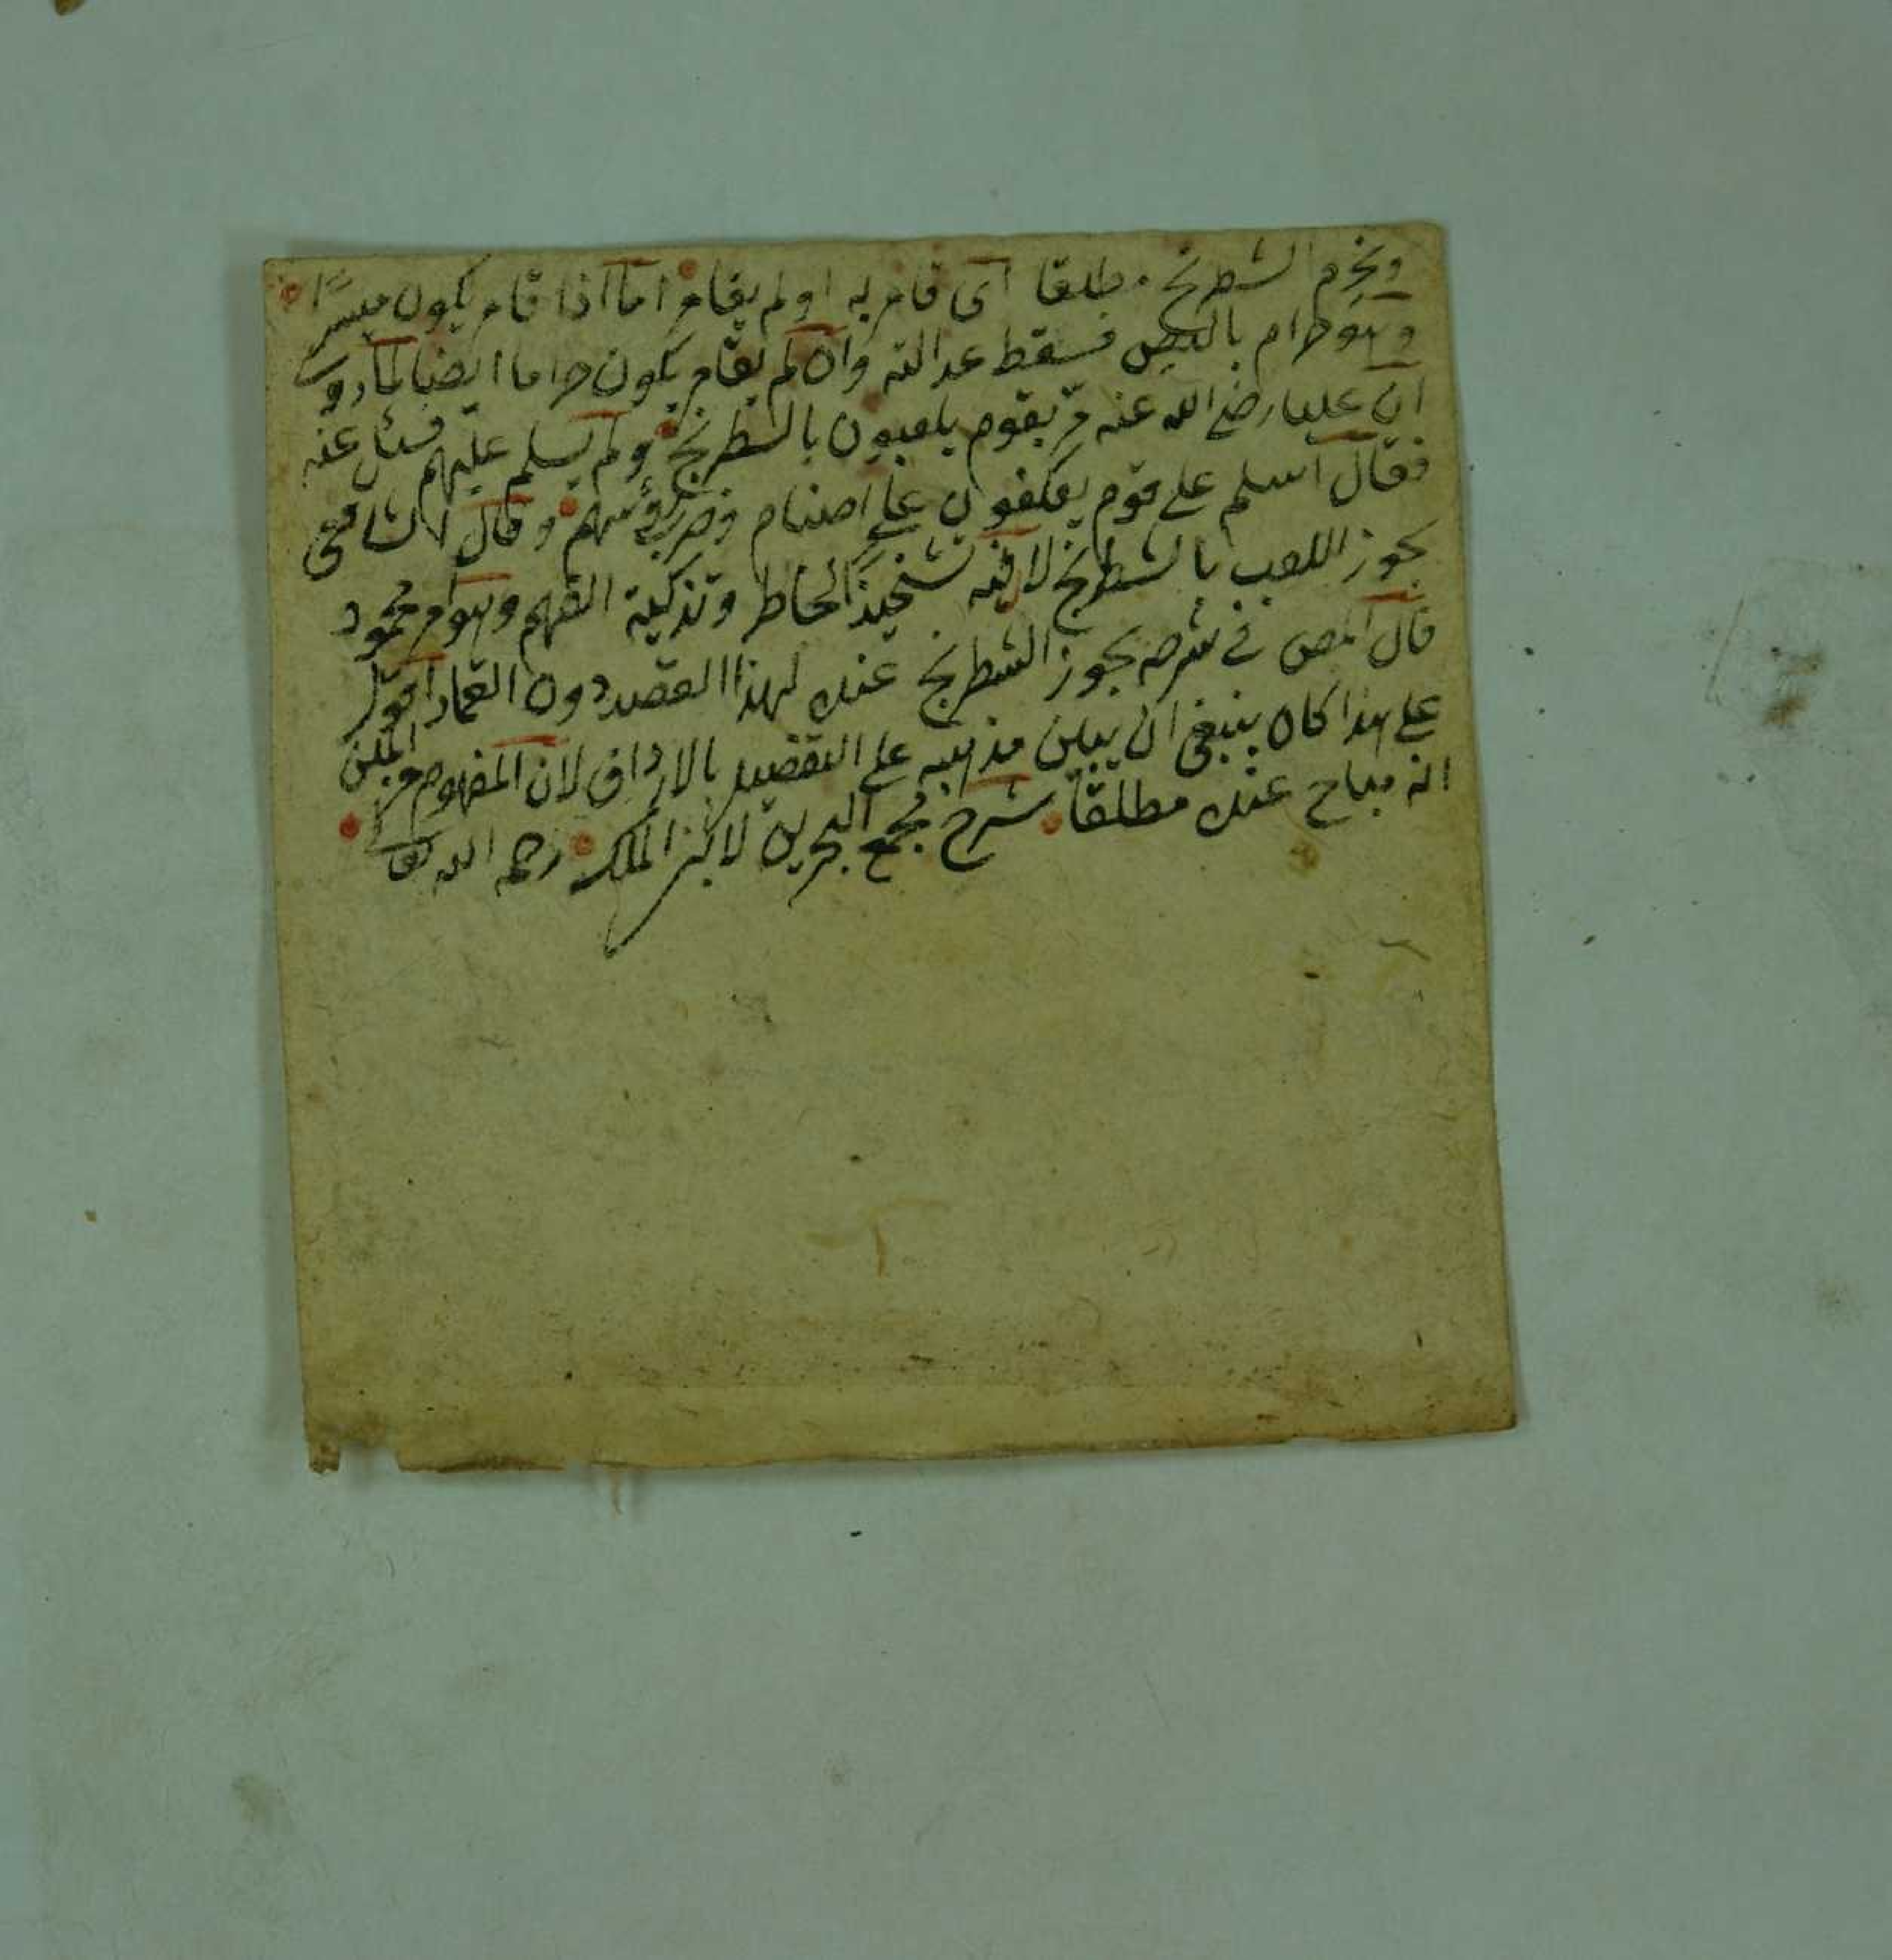 ونحرم الشطرنج مطلقا اى قامر به اولم يقامر اما اذا قامر يكون ميسرًا
وهو حرام بالنص فسقط عدالته وان لم يقامر يكون حراما ايضا لما روى
ان عليا رضى الله عنه مرّ بقوم يلعبون بالشطرنج ولم يسلم عليهم فسئل عنه
فقال اسلم على قوم يعكفون على اصنام فضرب رؤسهم وقال الشافعى
يجوز اللعب بالشطرنج لا فيه تشحيذ الخاطر وتذكية الفهم وهو امر محمود
قال المص فى شرحه يجوز الشطرنج عنده لهذا القصد دون القمار اقول
على هذا كان ينبغى ان يبين مذهبه على التفصيل بالارداف لان المفهوم من المتن
انه مباح عنده مطلقا شرح مجمع البحرين لابن الملك رحمه الله تعا